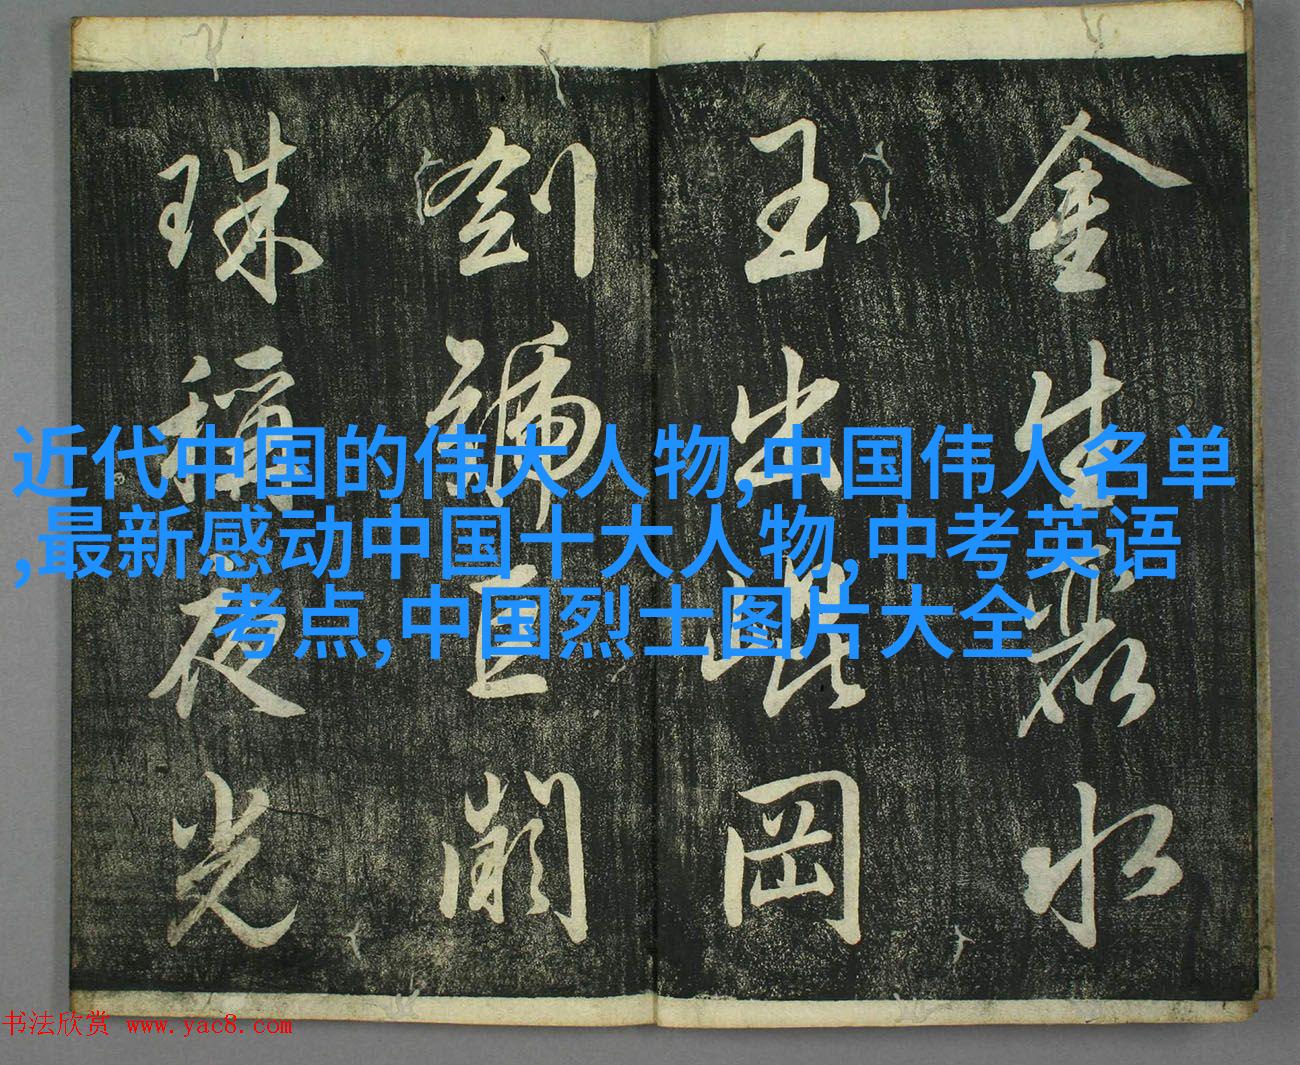 金生麗水
玉出崑岡
劍號巨闕
珠稱夜光
近代中国的伟大人物,中国伟人名单
,最新感动中国十大人物,中考英语
考点,中国烈士图片大全
书法欣赏 www.yac8.com